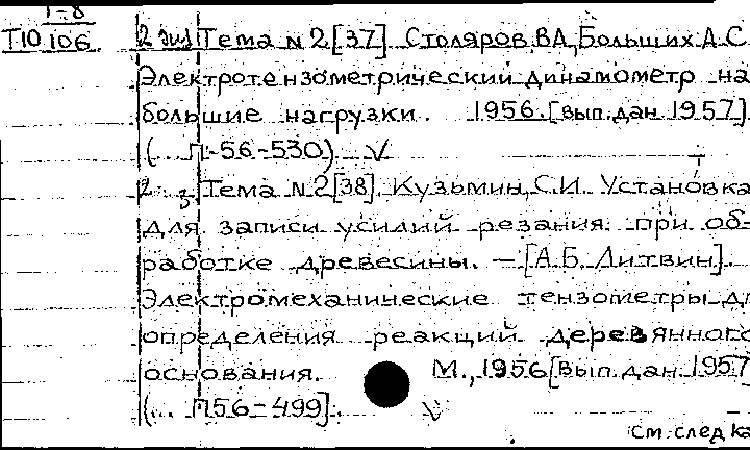 Т-8
Т10 106 2 экз Тема N2 [37] Столяров, В.А, Больших А.С.
Электротензометрический динамометр на
большие нагрузки. 1956. [Вып. дан. 1957]
(... П-56-530) V
2. з. Тема N2 [38]. Кузьмин, С.И. Установка
для записи усилий резания при об-
работке древесины. – [А.Б. Литвин].
Электромеханические тензометры д
определения реакций деревянного
основания. М., 1956 [Вып. дан. 1957
(... П56-499]. V
См. след ка